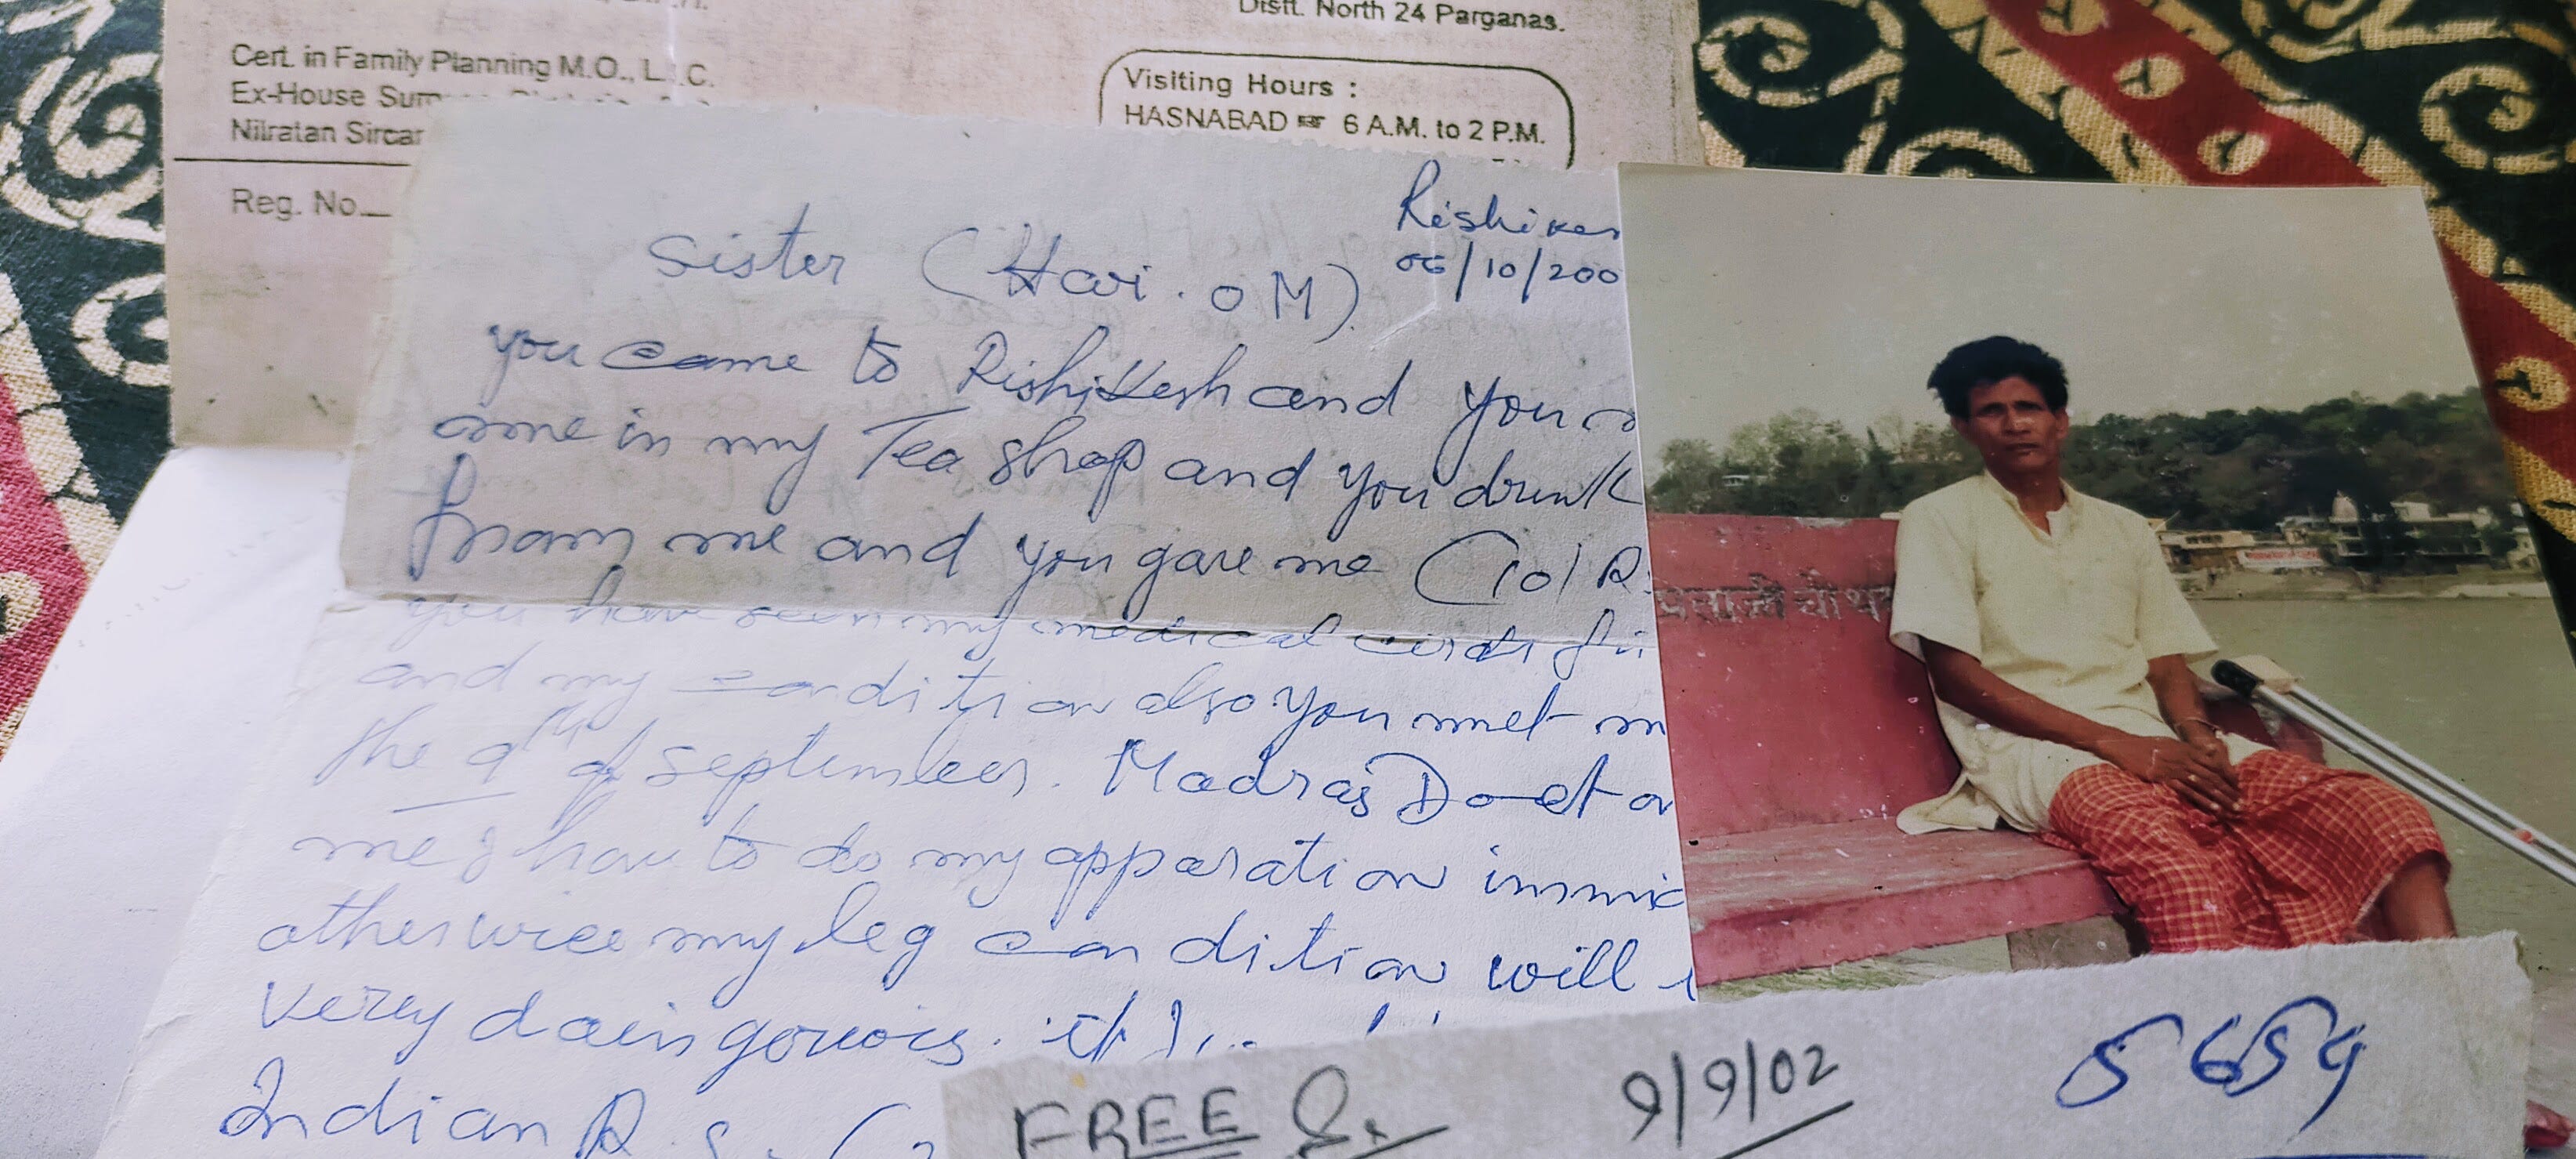 Distt. North 24 Parganas.
Cert. in Family Planning M.O., L.I.C.
Ex-House
Nilratan Sircar
Visiting Hours :
HASNABAD ☞ 6 A.M. to 2 P.M.
Reg. No.
Rishikes
06/10/200
Sister (Hari. OM).
you came to Rishikesh and you
ame in my Tea shop and you drunk
from me and you gave me (10/ R
you have seen my medical
and my condition also you met m
the 9th of September. Madras Doctor
me I have to do my apparation immid
otherwice my leg condition will
very daingerous. if I
Indian R.S. (
FREE
9/9/02
5654